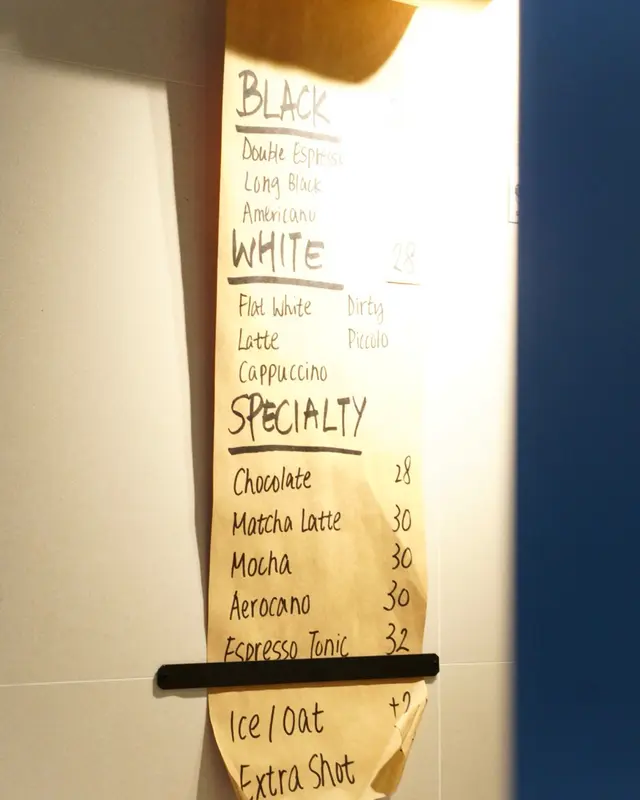 BLACK
Double Espresso
Long Black
Americano
WHITE 28
Flat White Dirty
Latte Piccolo
Cappuccino
SPECIALTY
Chocolate 28
Matcha Latte 30
Mocha 30
Aerocano 30
Espresso Tonic 32
Ice / Oat +2
Extra Shot